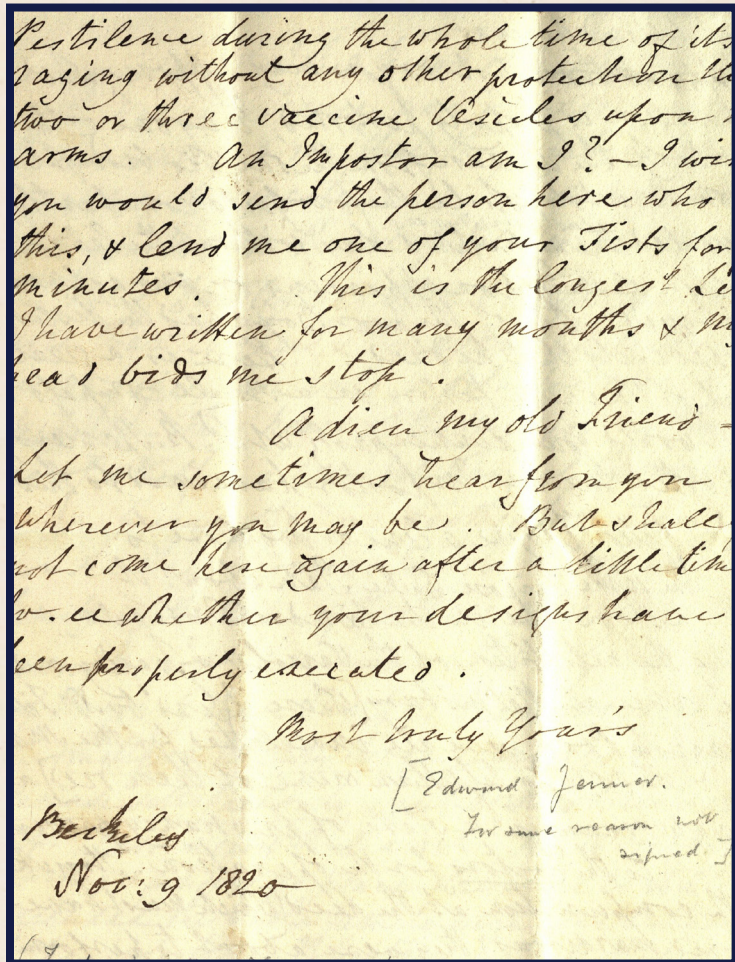 Pestilence during the whole time of its
raging without any other protection th
two or three vaccine Vesicles upon
arms. An Impostor am I? – I wi
you would send the person here who
this, & lend me one of your Fists for
minutes. This is the longest Le
I have written for many months & my
head bids me stop.
Adieu my old Friend –
Let me sometimes hear from you
wherever you may be. But shall
not come here again after a little tim
whether your designs have
been properly executed.
Most truly Your's
[Edward Jenner.
For some reason not
signed.]
Berkeley
Nov: 9 1820